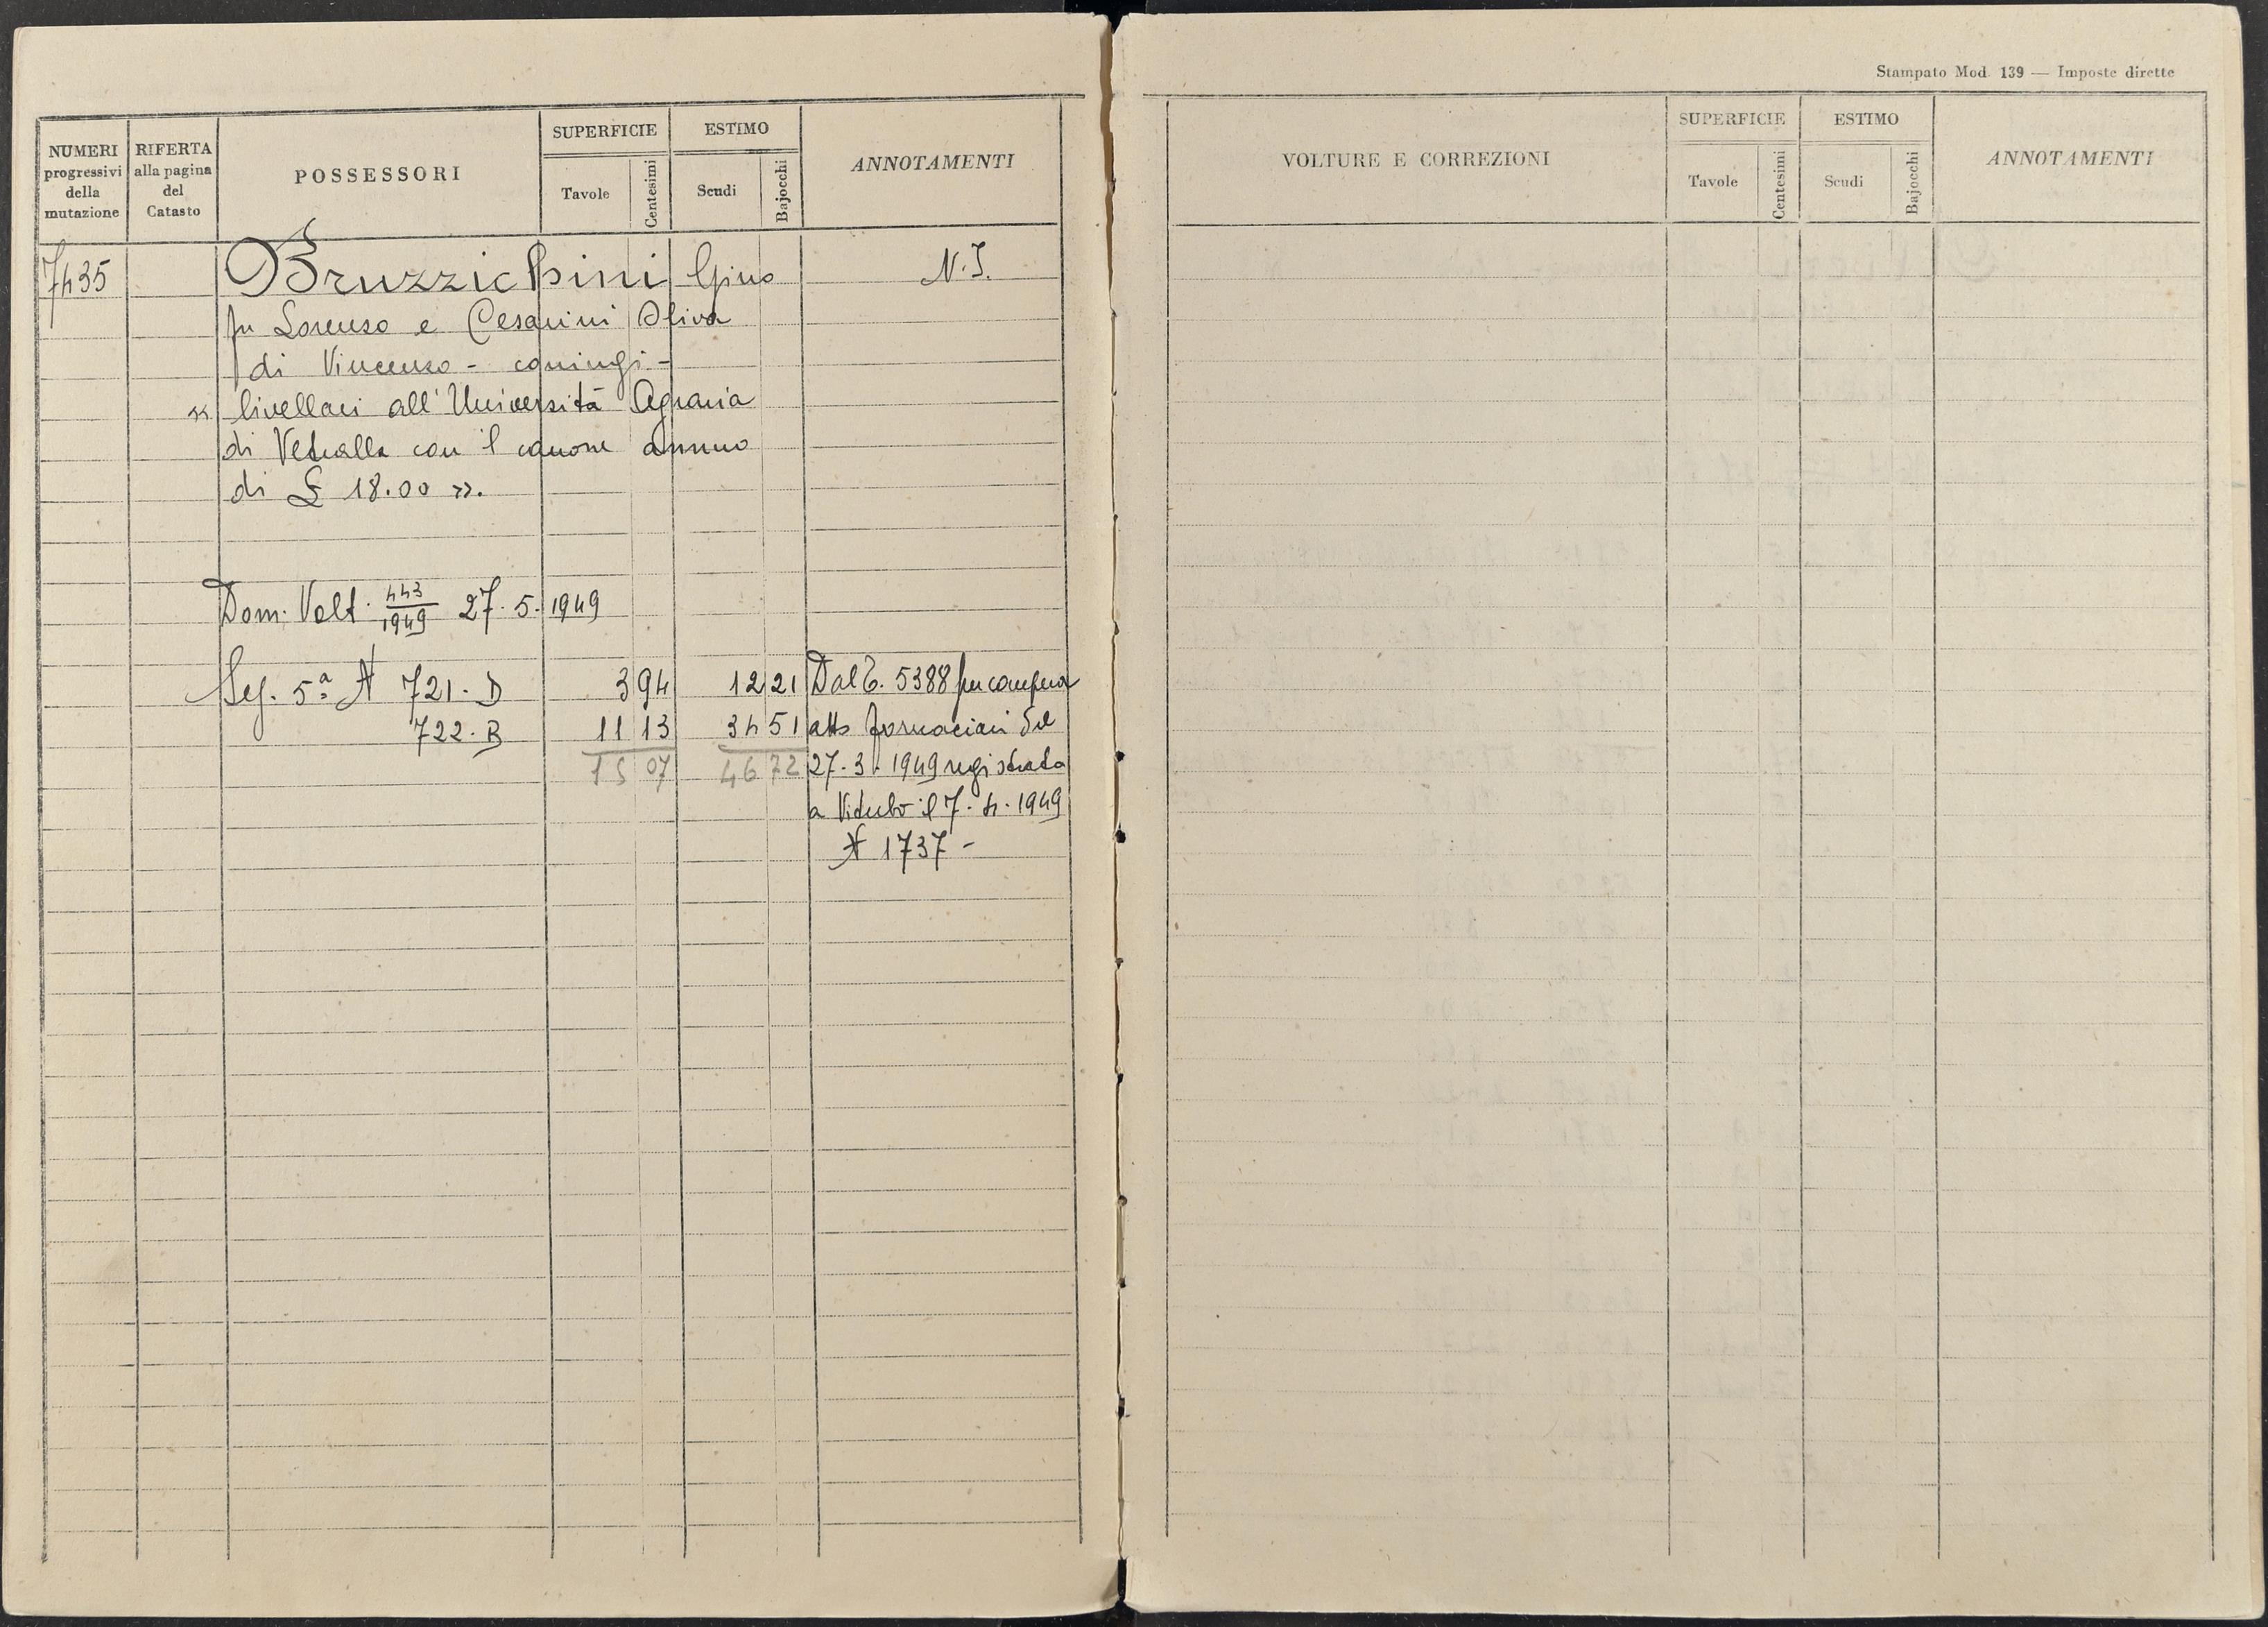 NUMERI progressivi della mutazione
RIFERTA alla pagina del Catasto
POSSESSORI
SUPERFICIE
Tavole
Centesimi
ESTIMO
Scudi
Bajocchi
ANNOTAMENTI
7435 Bruzzichini Gino N.I.
fu Lorenzo e Cesarini Oliva
di Vincenzo - coniugi -
« livellari all'Università Agraria
di Vetralla con il canone annuo
di £ 18.00 ».
Dom. Volt. 443/1949 27.5.1949
Sez. 5ª N 721. D 3 94 12 21 Dal C. 5388 per compera
722. B 11 13 34 51 atto Fornaciari del
15 07 46 72 27.3.1949 registrato
a Viterbo il 7.4.1949
N 1737 -
Stampato Mod. 139 — Imposte dirette
VOLTURE E CORREZIONI
SUPERFICIE
Tavole
Centesimi
ESTIMO
Scudi
Bajocchi
ANNOTAMENTI